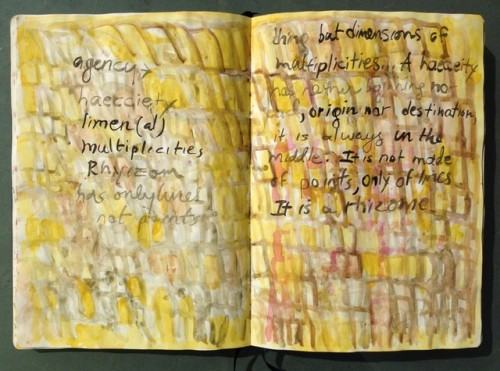 agency
haecciety
limen(al)
multiplicities
Rhyizom
has only lines
not points
thing but dimensions of
multiplicities... A haecceity
has neither beginning nor
end, origin nor destination
it is always in the
middle. It is not made
of points, only of lines
It is a rhizome